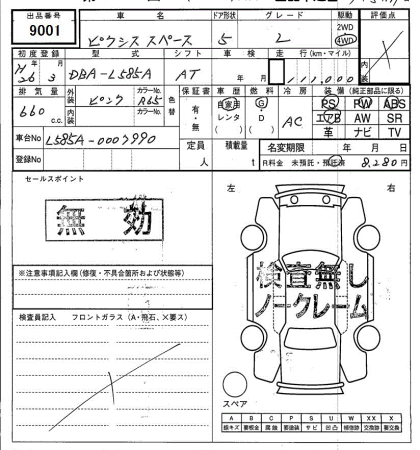 出品番号 車名 ドア形状 グレード 駆動 評価点
9001 ピクシス スペース 5 L 2WD 4WD
内装
初度登録 型式 シフト 車検 走行(km・マイル)
H26 3 DBA-L585A AT 年 月 111,000
排気量 外装 カラーNo. 色替 保証書 車歴 燃料 冷房 装備(純正部品に限る)
660 c.c. ピンク R65 有・無 自家用 G AC PS PW ABS
内装 カラーNo. レンタ ・D エアB AW SR
( ) ( ) 革 ナビ TV
車台No L585A-0007990 定員 積載量 名変期限 月 日
登録No 人 t R料金 未預託・預託済 8,280円
セールスポイント
無効
左 右
※注意事項記入欄(修復・不具合箇所および状態等)
検査無し
ノークレーム
検査員記入 フロントガラス(A・飛石、×要ス)
スペア
A B C P S U W X XX
線キズ 要板金 腐蝕 要塗装 サビ 凹凸 補修跡 交換跡 要交換